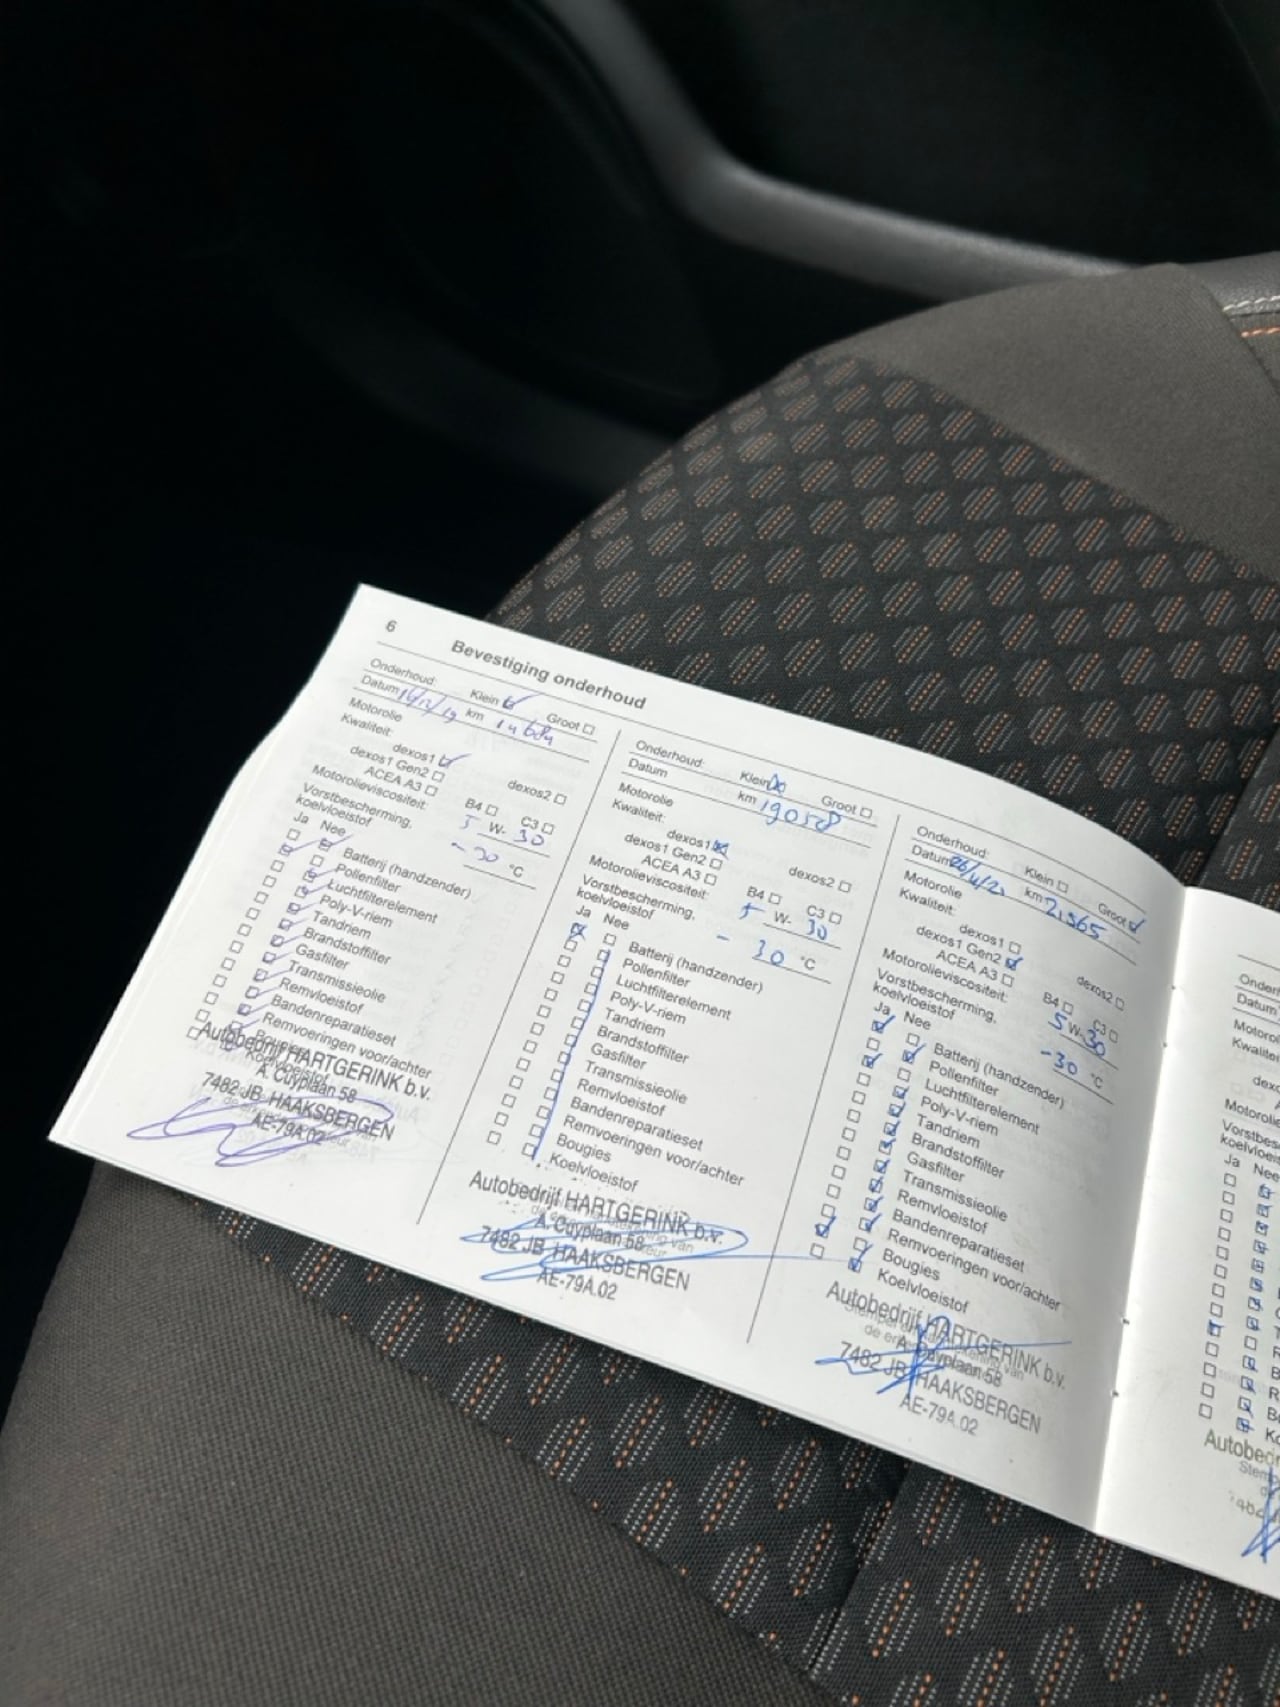 6
Bevestiging onderhoud
Onderhoud: Klein Groot
Datum 16/12/19 km 14684
Motorolie
Kwaliteit:
dexos1 dexos2
dexos1 Gen2
ACEA A3 B4 C3
Motorolieviscositeit: 5 W- 30
Vorstbescherming,
koelvloeistof - 30 °C
Ja Nee
Batterij (handzender)
Pollenfilter
Luchtfilterelement
Poly-V-riem
Tandriem
Brandstoffilter
Gasfilter
Transmissieolie
Remvloeistof
Bandenreparatieset
Remvoeringen voor/achter
Bougies
Koelvloeistof
Autobedrijf HARTGERINK b.v.
A. Cuyplaan 58
7482 JB HAAKSBERGEN
AE-79A.02
Onderhoud: Klein Groot
Datum km 19058
Motorolie
Kwaliteit:
dexos1 dexos2
dexos1 Gen2
ACEA A3 B4 C3
Motorolieviscositeit: 5 W- 30
Vorstbescherming,
koelvloeistof - 30 °C
Ja Nee
Batterij (handzender)
Pollenfilter
Luchtfilterelement
Poly-V-riem
Tandriem
Brandstoffilter
Gasfilter
Transmissieolie
Remvloeistof
Bandenreparatieset
Remvoeringen voor/achter
Bougies
Koelvloeistof
Autobedrijf HARTGERINK b.v.
A. Cuyplaan 58
7482 JB HAAKSBERGEN
AE-79A.02
Onderhoud: Klein Groot
Datum km 21565
Motorolie
Kwaliteit:
dexos1 dexos2
dexos1 Gen2
ACEA A3 B4 C3
Motorolieviscositeit: 5 W- 30
Vorstbescherming,
koelvloeistof -30 °C
Ja Nee
Batterij (handzender)
Pollenfilter
Luchtfilterelement
Poly-V-riem
Tandriem
Brandstoffilter
Gasfilter
Transmissieolie
Remvloeistof
Bandenreparatieset
Remvoeringen voor/achter
Bougies
Koelvloeistof
Autobedrijf HARTGERINK b.v.
A. Cuyplaan 58
7482 JB HAAKSBERGEN
AE-79A.02
Datum
Ja Nee